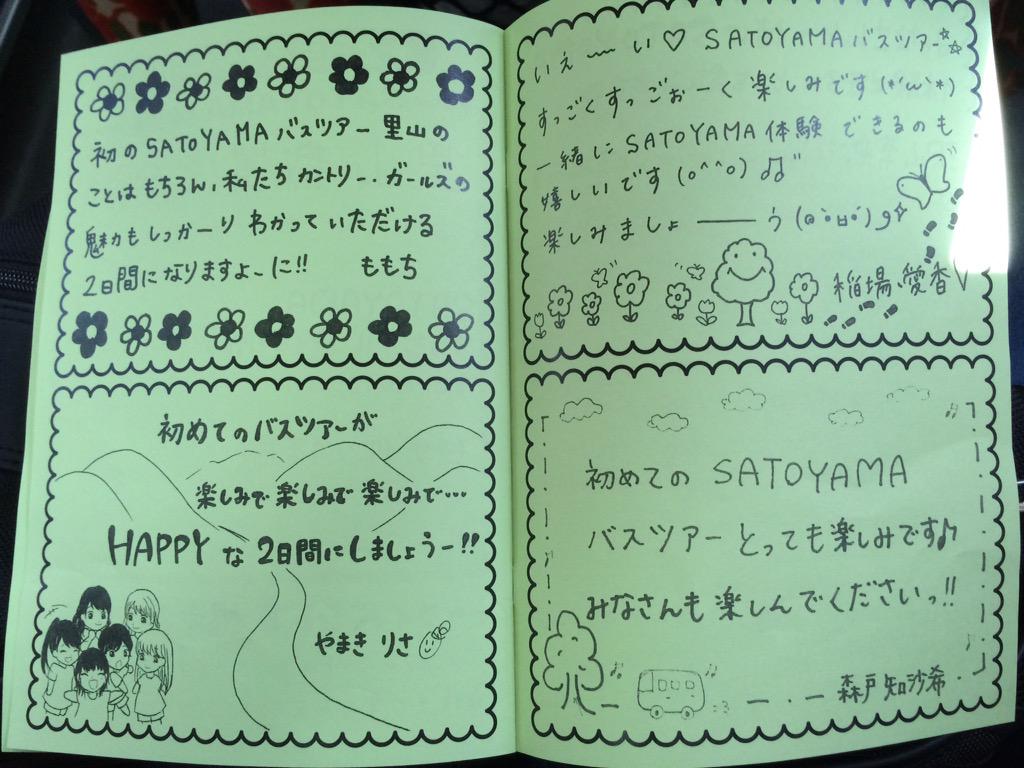 初のSATOYAMAバスツアー里山の
ことはもちろん、私たちカントリー・ガールズの
魅力もしっかーりわかっていただける
2日間になりますよーに!! ももち
初めてのバスツアーが
楽しみで楽しみで楽しみで…
HAPPYな2日間にしましょうー!!
やまき りさ
いえ〜い♡ SATOYAMAバスツアー☆☆
すっごくすっごおーく楽しみです(*'ω'*)
一緒にSATOYAMA体験できるのも
嬉しいです(o^^o)♫
楽しみましょ――う
稲場愛香
初めてのSATOYAMA
バスツアーとっても楽しみです♪
みなさんも楽しんでくださいっ!!
森戸知沙希